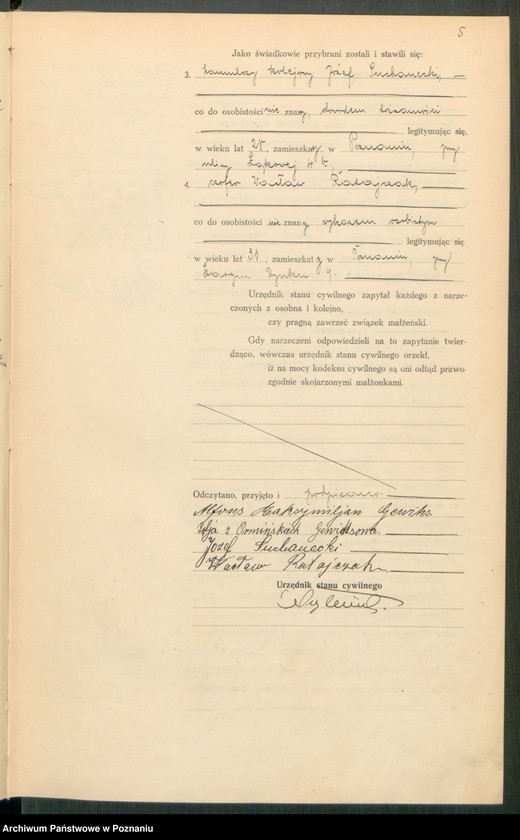 5
Jako świadkowie przybrani zostali i stawili się:
3. kolejowy Józef Suchanecki,
co do osobistości nie znany, dowodem tożsamości
legitymując się,
w wieku lat 25, zamieszkały w Poznaniu, przy
ulicy Łąkowej 4 b,
4. szofer Wacław Ratajczak,
co do osobistości nie znany, wykazem osobistym
legitymując się
w wieku lat 31, zamieszkały w Poznaniu, przy
Starym Rynku 9.
Urzędnik stanu cywilnego zapytał każdego z narze-
czonych z osobna i kolejno,
czy pragną zawrzeć związek małżeński.
Gdy narzeczeni odpowiedzieli na to zapytanie twier-
dząco, wówczas urzędnik stanu cywilnego orzekł,
iż na mocy kodeksu cywilnego są oni odtąd prawo-
zgodnie skojarzonymi małżonkami.
Odczytano, przyjęto i podpisano.
Alfons Maksymiljan
z
Józef Suchanecki
Wacław Ratajczak
Urzędnik stanu cywilnego
Archiwum Państwowe w Poznaniu